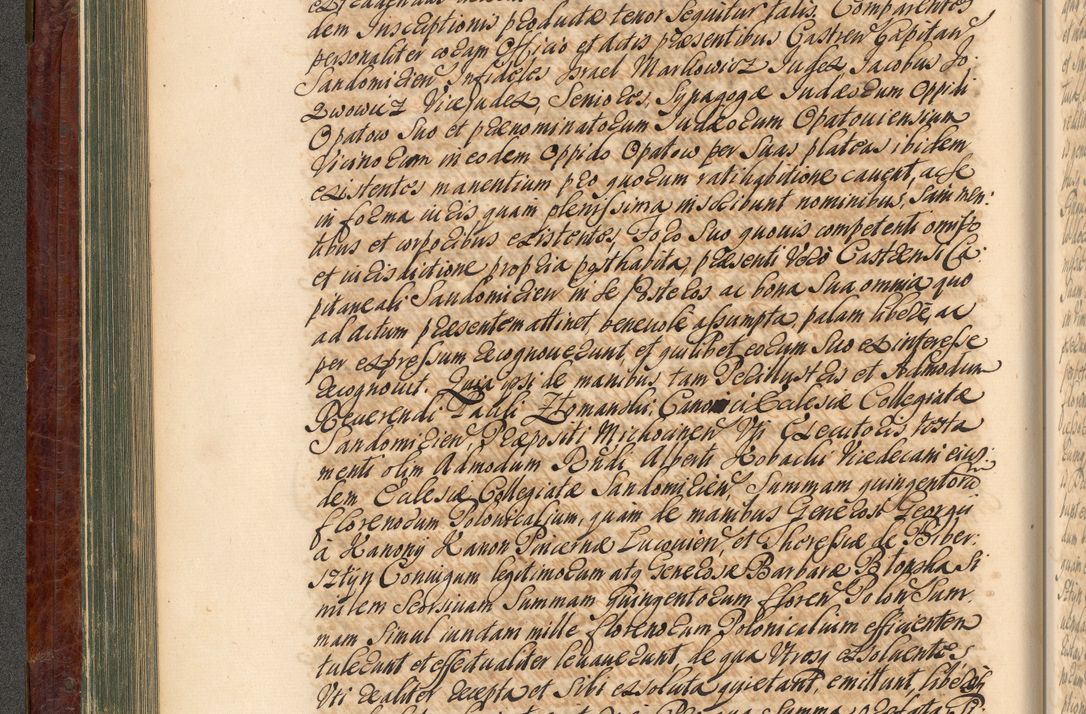 dem Inscriptionis producta tenor Sequitur talis. Comparentes
personaliter coram Officio et Actis præsentibus Castren Capitan
Sandomirien Infideles Israel Markowicz Judex, Jacobus Jo-
zwowicz ViceJudex, Seniores, Synagogæ Judæorum Oppidi
Opatow Suo et prænominatorum Judæorum Opatoviensium
Vicinorum in eodem Oppido Opatow per Suas plateas ibidem
existentes manentium pro quorum ratihabitione cavent, ac se
in forma iuris quam plenissima inscribunt nominibus, Sani men-
tibus et corporibus existentes, Foro Suo quovis competenti omisso
et iurisdictione propria posthabita, præsenti Vero Castrensi Ca-
pitaneali Sandomirien in se Posteros ac bona Sua omnia quo
ad actum præsentem attinet, benevole assumpta, palam libere, ac
per expressum recognoverunt, et quilibet eorum Suo ex interesse
recognovit. Quia ipsi de manibus tam Perillustris et Admodum
Reverendi Pauli Canonici Ecclesiæ Collegiatæ
Sandomirien, Præpositi Michocinen Uti Executoris testa
menti olim Admodum Rndi Alberti Kobachi Vicedecani eius-
dem Ecclesiæ Collegiatæ Sandomirien, Summam quingentorū
florenorum Polonicalium, quam de manibus Generosi Georgii
à Kanony Kanon Pincernæ et Theresiæ de Biber-
sztyn Coniugum legitimorum atq Generosæ Barbaræ Si
militem Seorsivam Summam quingentorum Floren Polon Sum-
mam Simul iunctam mille florenorum Polonicalium efficientem
tulerunt et effectualiter levaverunt, de qua Utrosq exsolventes
Uti realiter recepta et Sibi exsoluta quietant, emittunt, liberos